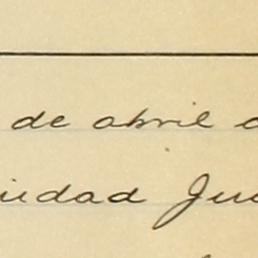 de abril d
iudad Jua